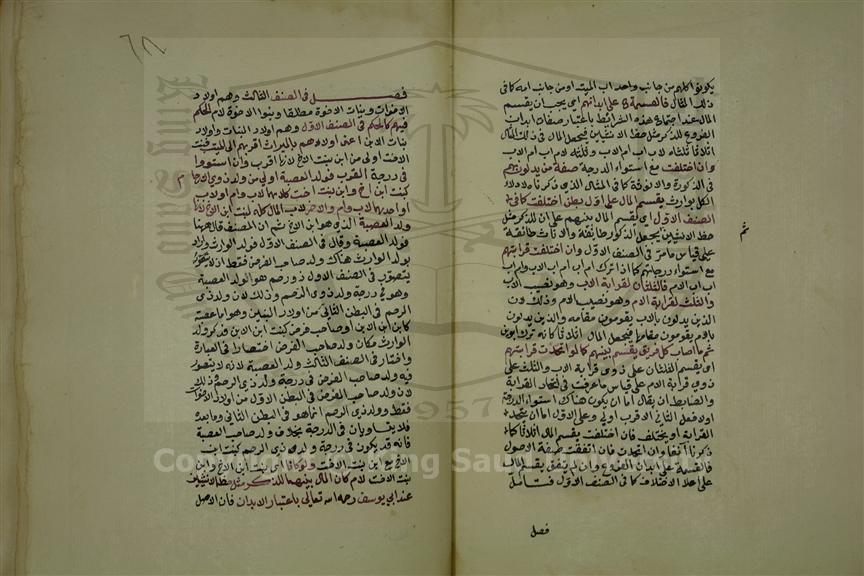 يكونوا كلهم من جانب واحد اب الميت او من جانب امه كما في
ذلك المثال فالقسمة على ابدانهم اي يجب ان يقسم
المال عند اجتماع هذه الشرايط باعتبار صفات ابدان
الفروع للذكر مثل حظ الانثيين فيجعل المال في ذلك المثال
اثلاثا ثلثاه لاب ام الاب وثلثه لام اب ام الاب
وان اختلفت مع استواء الدرجة صفة من يدلون بهم
في الذكورة والانوثة كما في المثال الذي ذكرناه لاولاد
الكل بوارث يقسم المال على اول بطن اختلفت كما في
الصنف الاول اي يقسم المال بينهم على ان للذكر مثل
حظ الانثيين فيجعل الذكور طائفة والاناث طائفة
على قياس ما مر في الصنف الاول وان اختلفت قرابتهم
مع استواء درجاتهم كما اذا ترك ام اب ام اب الاب وام اب
اب اب الام فالثلثان لقرابة الاب وهو نصيب الاب
والثلث لقرابة الام وهو نصيب الام وذلك لان
الذين يدلون بالاب يقومون مقامه والذين يدلون
بالام يقومون مقامها فيجعل المال اثلاثا كانه ترك ابوين
ثم ما اصاب كل فريق يقسم بينهم كما لو اتحدت قرابتهم
اي يقسم الثلثان على ذوي قرابة الاب والثلث على
ذوي قرابة الام على قياس ما عرفت في اتحاد القرابة
والضابط ان يقال اما ان يكون هناك استواء الدرجة
اولا فعلى الثاني الاقرب اولى وعلى الاول اما ان تتحد
القرابة او يختلف فان اختلفت يقسم المال اثلاثا كما
ذكرنا آنفا وان اتحدت فان اتفقت صفة الاصول
فالقسمة على ابدان الفروع وان لم يتفق يقسم المال
على اعلا الاختلاف كما في الصنف الاول فتأمل
فصل
ثم
٦٨
فصل في الصنف الثالث وهم اولاد
الاخوات وبنات الاخوة مطلقا وبنوا الاخوة لام الحكم
فيهم كالحكم في الصنف الاول وهم اولاد البنات واولاد
بنات الابن اعني اولاهم بالميراث اقربهم الى الميت فبنت
الاخت اولى من ابن بنت الاخ لانها اقرب وان استووا
في درجة القرب فولد العصبة اولى من ولد ذوي الارحام
كبنت ابن اخ وابن بنت اخت كلاهما لاب وام او لاب
او احدهما لاب وام والاخر لاب المال كله لبنت ابن الاخ لانها
ولد العصبة الذي هو ابن الاخ ثم ان المصنف قال ههنا
فولد العصبة وقال في الصنف الاول فولد الوارث واراد
بولد الوارث هناك ولد صاحب الفرض فقط اذ لا
يتصور في الصنف الاول ذو رحم هو الولد العصبة
وهو في درجة ولد ذي الرحم وذلك لان ولد ذي
الرحم في البطن الثاني من اولاد البنات وهو اما عصبة
كابن ابن الابن او صاحب فرض كبنت ابن الابن فذكر ولد
الوارث مكان ولد صاحب الفرض اختصارا في العبارة
واختار في الصنف الثالث ولد العصبة لانه لا يتصور
فيه ولد صاحب الفرض في درجة ولد ذي الرحم وذلك
لان ولد صاحب الفرض في البطن الاول من اولاد الاخوات
فقط وولد ذي الرحم انما هو في البطن الثاني وما بعده
فلا يتساويان في الدرجة بخلاف ولد صاحب العصبة
فانه قد يكون في درجة ولد ذي الرحم كبنت ابن
الاخ مع ابن بنت الاخت ولو كانا اي بنت ابن الاخ وابن
بنت الاخت لام كان المال بينهما للذكر مثل حظ الانثيين
عند ابي يوسف رحمه الله تعالى باعتبار الابدان فان الاصل
King Saud
1957